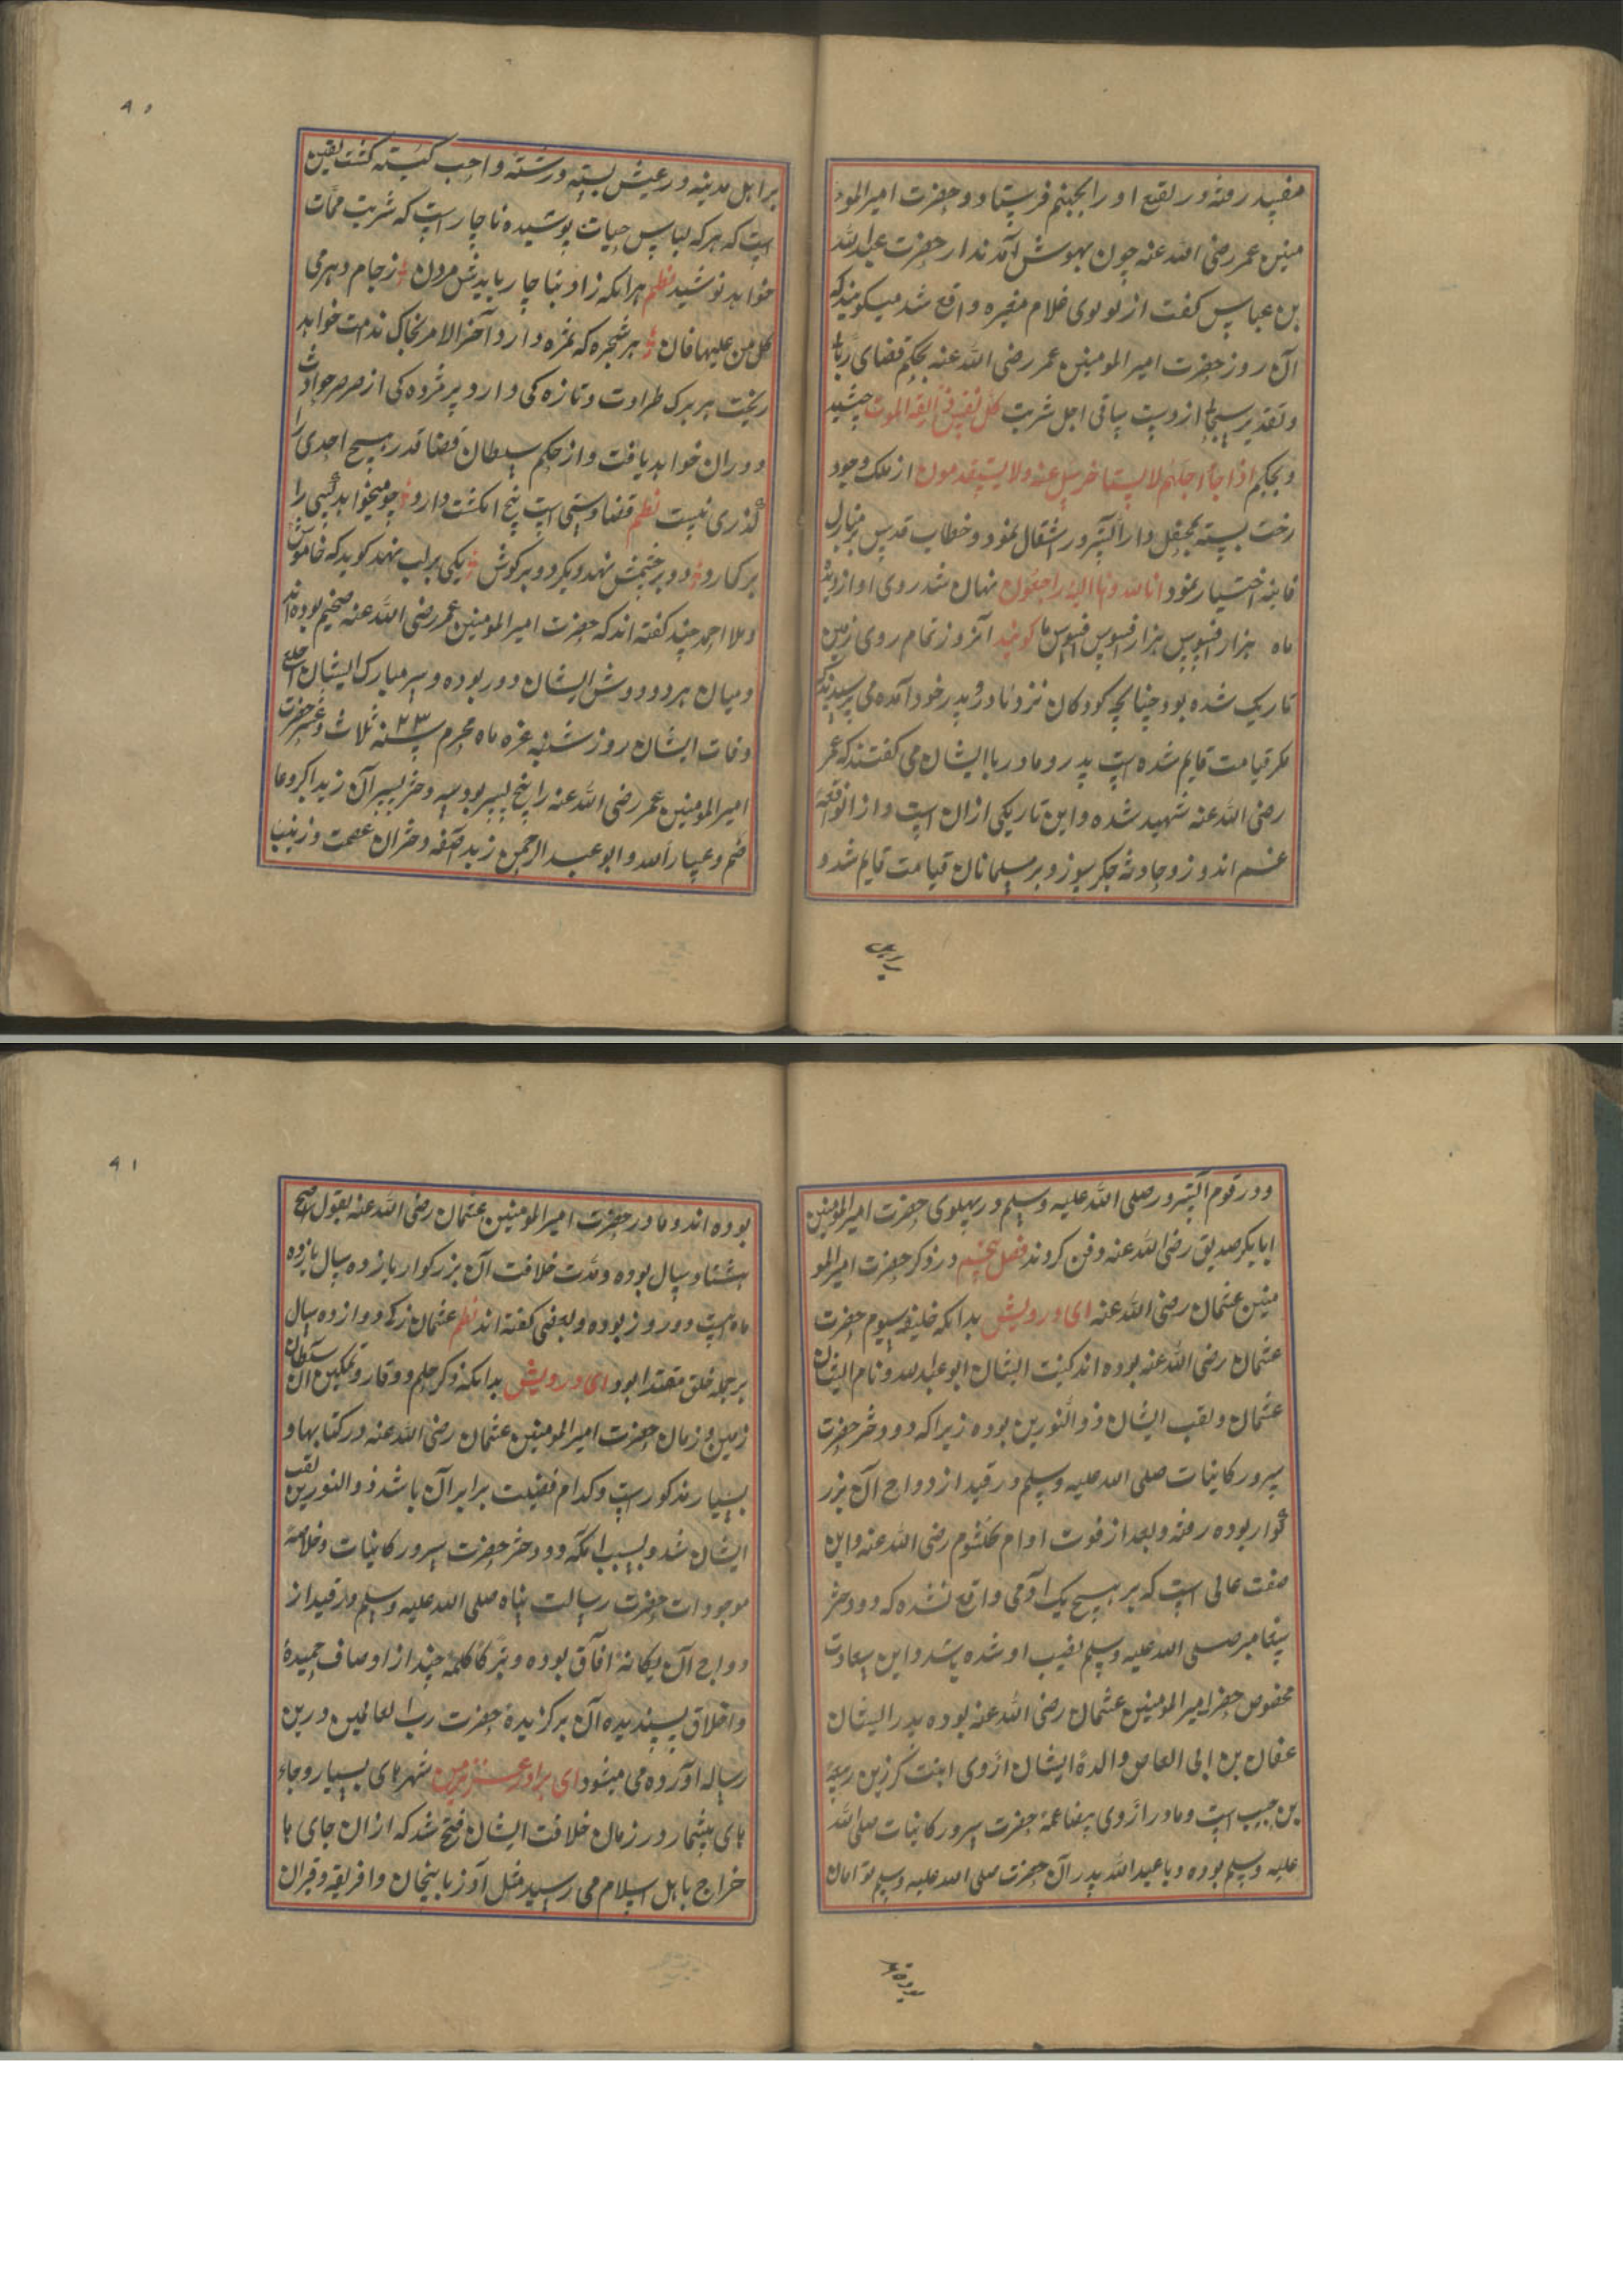 مفید رفته در بقیع او را بجهنم فرستاد و حضرت امیر المو
منین عمر رضی الله عنه چون بهوش آمدند از حضرت عبدالله
بن عباس گفت از لولوی غلام مغیره واقع شد میگویند که
آن روز حضرت امیر المومنین عمر رضی الله عنه بحکم قضای
و تقدیر از دست ساقی اجل شربت کل نفس ذائقة الموت چشید
و بحکم اذا جاء اجلهم لا یستاخرون ساعة ولا یستقدمون از ملک وجود
رخت بسته بمحفل دار السرور انتقال نمود و خطاب قدس
اختیار نمود انا لله وانا الیه راجعون نهان شد روی او از دیده
ماه هزار افسوس هزار افسوس افسوس ما گویند آنروز تمام روی زمین
تاریک شده بود چنانچه کودکان نزد مادر و پدر خود آمده می پرسیدند که
مگر قیامت قایم شده است پدر و مادر با ایشان می گفتند که عمر
رضی الله عنه شهید شده و این تاریکی ازان است و از انواقعهٔ
غم اندوز و حادثه جگر سوز و بر مسلمانان قیامت قایم شد و
براهل
۹۰
براهل مدینه در عیش بسته و رشته واجب گسته گشت یقین
است که هر که لباس حیات پوشیده ناچار است که شربت ممات
خواهد نوشید نظم هرانکه زاد بناچار بایدش مردن ز جام دهر می
کل من علیها فان هر شجره که ثمره دارد آخر الامر بخاک ندامت خواهد
ریخت هر برگ طراوت و تازه کی دارد پژمرده کی از صرصر حوادث
دوران خواهد یافت و از حکم سلطان قضا قدر هیچ احدی را
گذری نیست نظم قضا دستی است پنج انگشت دارد چو میخواهد کسی را
بر کنارد دو بر چشمش نهد دیگر دو بر گوش یکی بر لب نهد گوید که خاموش
و ملا احمد چند گفته اند که حضرت امیر المومنین عمر رضی الله عنه ضخیم بوده اند
و میان هر دو دوش ایشان دور بوده و سر مبارک ایشان اصلع
وفات ایشان روز شنبه غره ماه محرم سنه ۲۳ ثلاث و عشر حضرت
امیر المومنین عمر رضی الله عنه را پنج پسر بود سه دختر پسر آن زید اکبر و عا
صم و عبدالله و ابو عبد الرحمن زید اصغر و دختران عصمت و زینب
۹۱
و در قوم آنسرور صلی الله علیه وسلم در پهلوی حضرت امیر المومنین
ابابکر صدیق رضی الله عنه دفن کردند فصل پنجم در ذکر حضرت امیر المو
منین عثمان رضی الله عنه ای درویش بدانکه خلیفه سیوم حضرت
عثمان رضی الله عنه بوده اند کنیت ایشان ابو عبدالله و نام ایشان
عثمان و لقب ایشان ذو النورین بوده زیراکه دو دختر حضرت
سرور کاینات صلی الله علیه وسلم در قید ازدواج آن بزر
گوار بوده رفته و بعد از فوت او ام کلثوم رضی الله عنه و این
صفت عالی است که بر هیچ یک آدمی واقع نشده که دو دختر
پیغامبر صلی الله علیه وسلم نصیب او شده باشد و این سعادت
مخصوص حضرت امیر المومنین عثمان رضی الله عنه بوده پدر ایشان
عفان بن ابی العاص والدهٔ ایشان اروی ابنت کرز بن ربیعه
بن حبیب است و مادر اروی بیضا عمهٔ حضرت سرور کاینات صلی الله
علیه وسلم بوده و با عبدالله پدر آن حضرت صلی الله علیه وسلم توامان
بوده اند
بوده اند و مادر حضرت امیر المومنین عثمان رضی الله عنه بقول اصح
هشتاد سال بوده و مدت خلافت آن بزرگوار یازده سال یازده
ماه است دو روز بوده و بعضی گفته اند نظم عثمان زکه دوازده سال
بر جمله خلق مقتدا بود ای درویش بدانکه ذکر حلم و وقار و تمکین آن سلطان
زمین و زمان حضرت امیر المومنین عثمان رضی الله عنه در کتابها و
بسیار مذکور است و کدام فضیلت برابر آن باشد ذو النورین لقب
ایشان شد و بسبب آنکه دو دختر حضرت سرور کاینات و خلاصهٔ
موجودات حضرت رسالت پناه صلی الله علیه وسلم در قید از
دواج آن یگانهٔ آفاق بوده و تبرکا کلمهٔ چند از اوصاف حمیدهٔ
و اخلاق پسندیده آن برگزیدهٔ حضرت رب العالمین درین
رساله آورده می میشود ای برادر عزیز من شهرهای بسیار و جاء
های بیشمار در زمان خلافت ایشان فتح شد که ازان جای ها
خراج باهل اسلام می رسید مثل آوزبایجان و افریقه و قبران